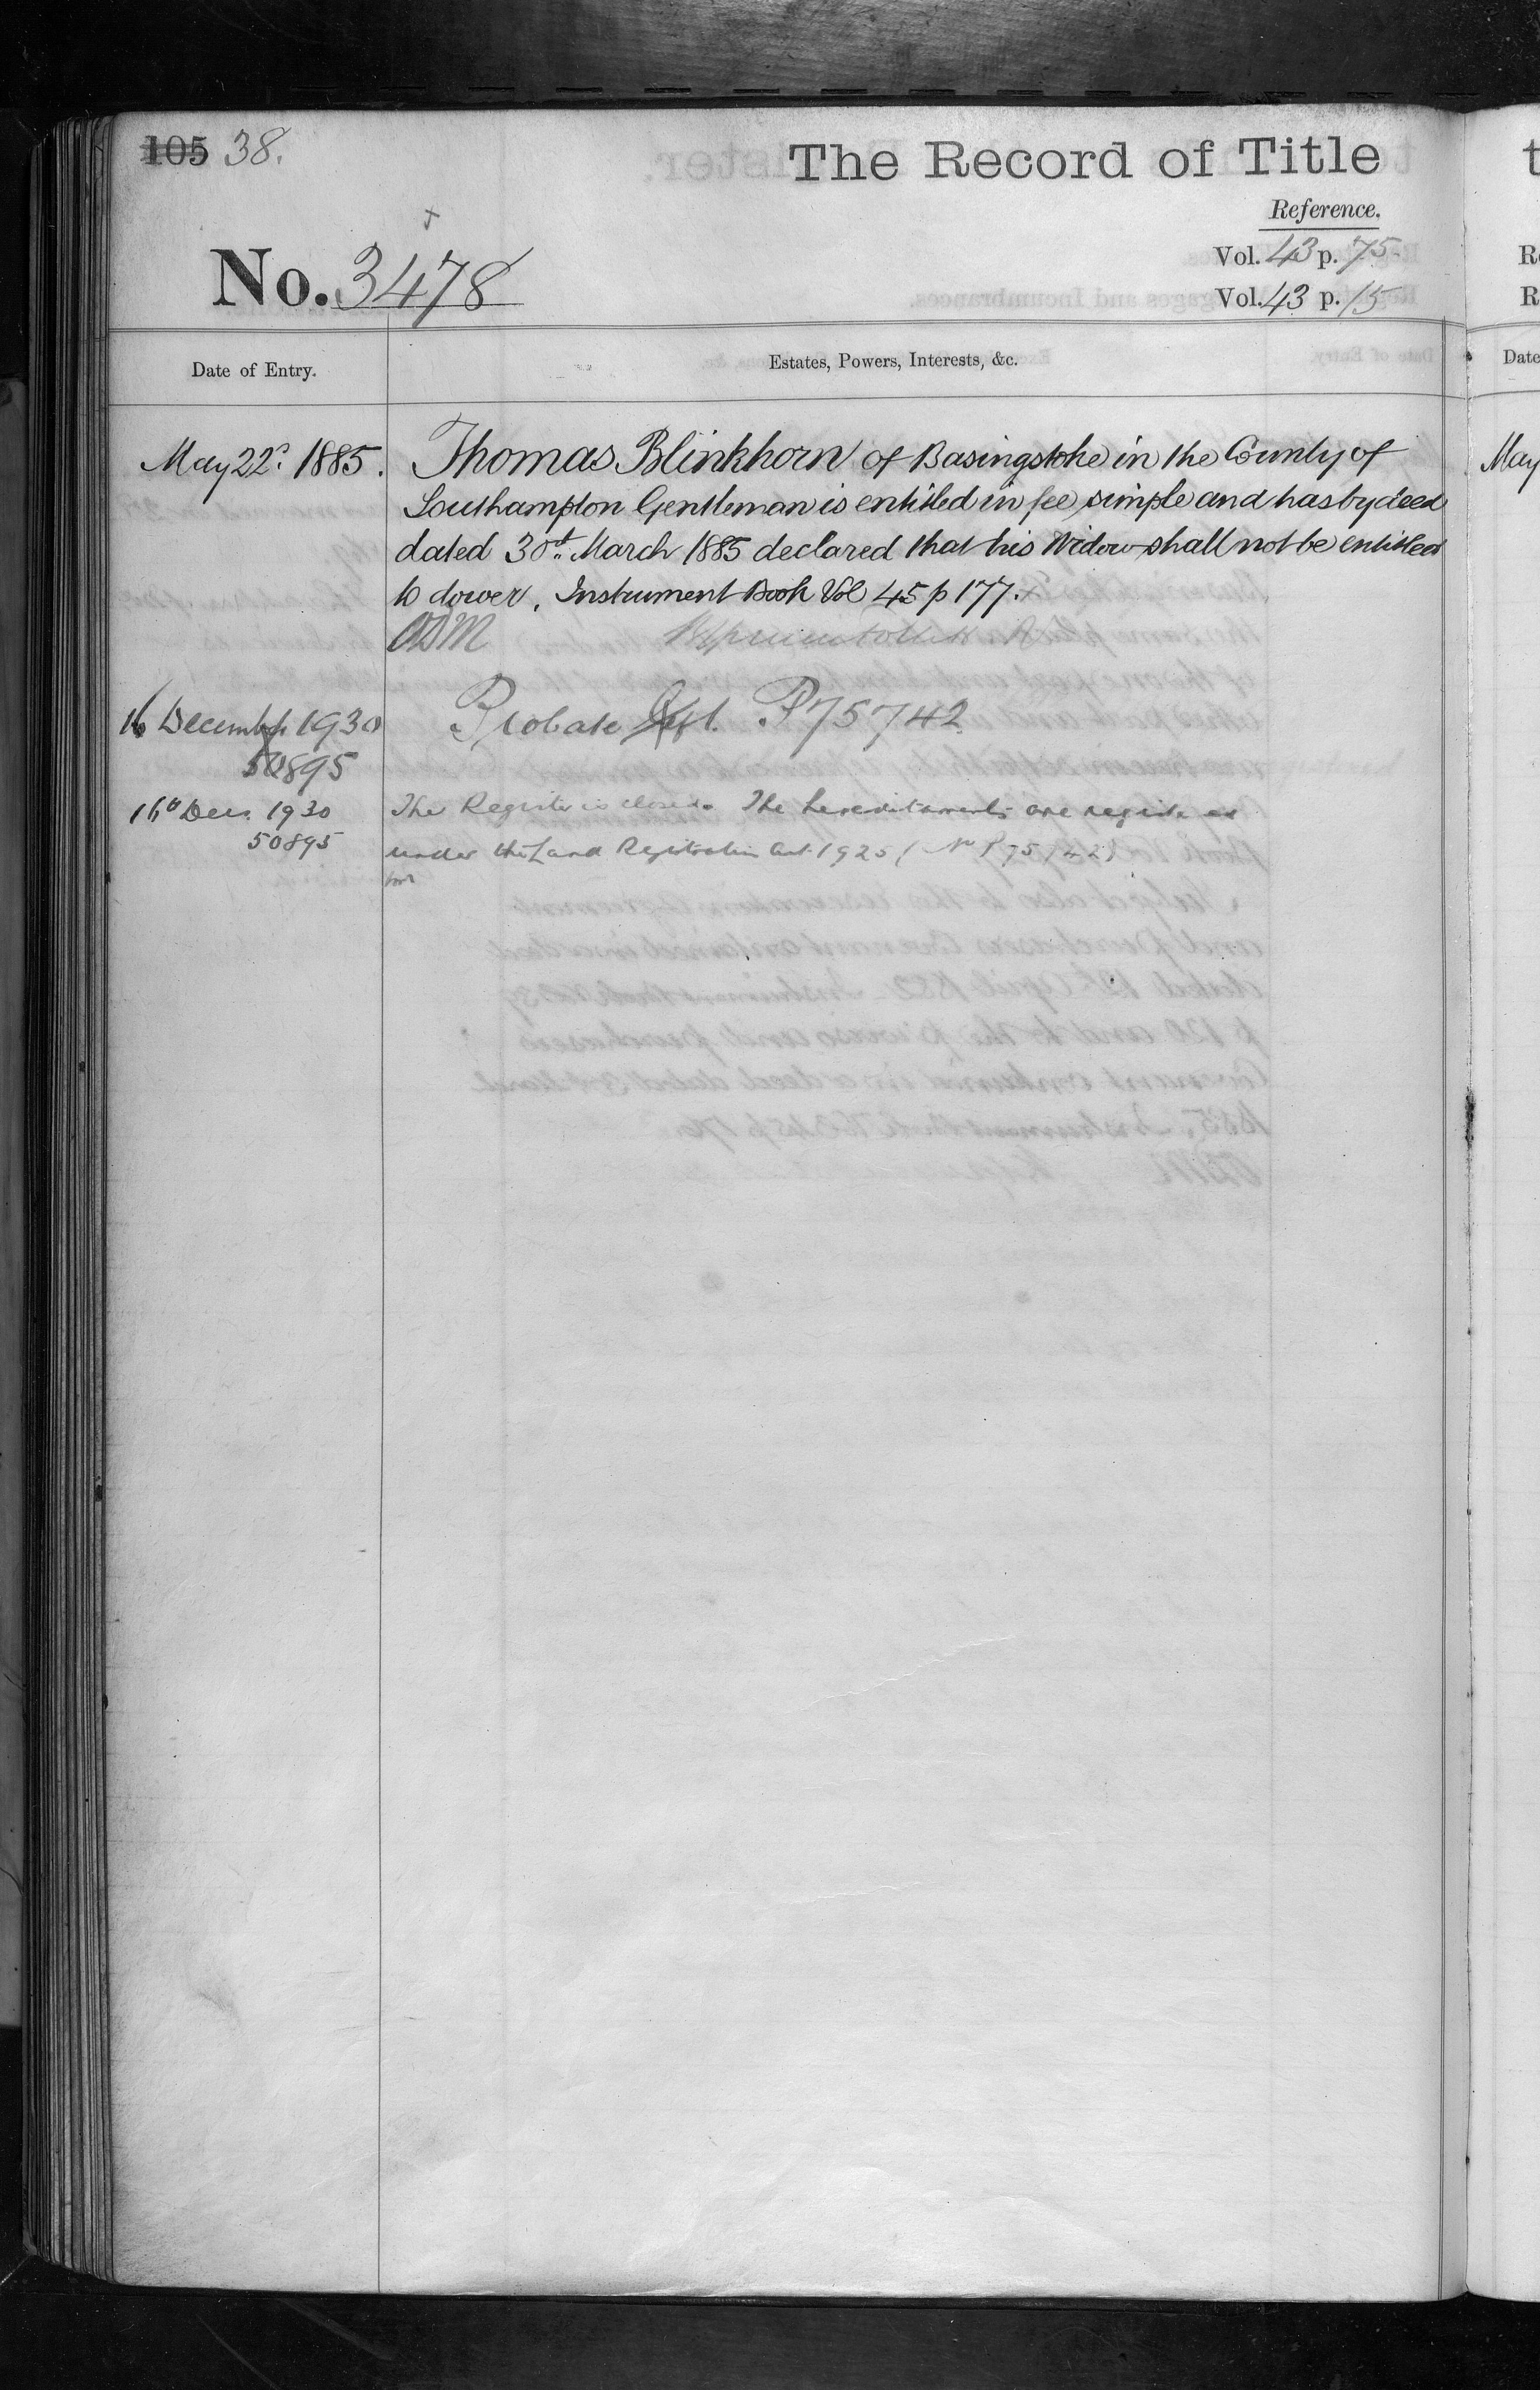 105 38.
The Record of Title
Reference.
No. 3478
Vol. 43 p. 75
Vol. 43 p. 15
Date of Entry.
Estates, Powers, Interests, &c.
May 22d. 1885. Thomas Blinkhorn of Basingstoke in the County of
Southampton Gentleman is entitled in fee simple and has by deed
dated 30th March 1885 declared that his Widow shall not be entitled
to dower. Instrument Book Vol 45 p 177.
16 December 1930 Probate P75742
50895
16th Dec. 1930 The Register is closed. The hereditaments are registered
50895 under the Land Registration Act 1925 (No P 75742)
R
R
Date
May